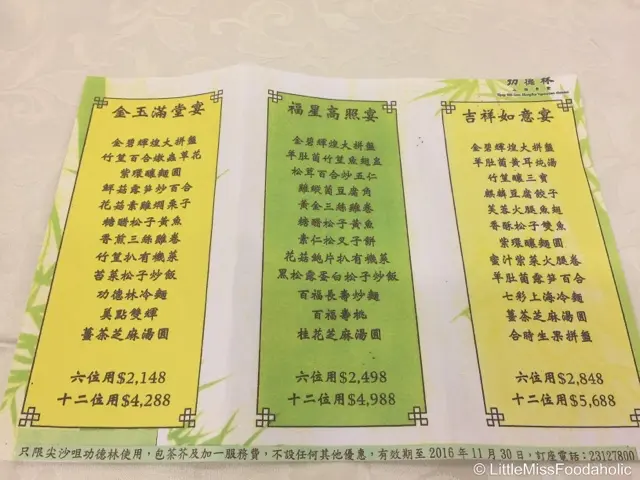 功德林
金玉滿堂宴
金碧輝煌大拼盤
竹笙百合燉蟲草花
紫環釀麵圓
鮮菇露笋炒百合
花菇素雞燜栗子
糖醋松子黃魚
香煎三絲雞卷
竹笙扒有機菜
苔菜松子炒飯
功德林冷麵
美點雙輝
薑茶芝麻湯圓
六位用$2,148
十二位用$4,288
福星高照宴
金碧輝煌大拼盤
羊肚菌竹笙魚翅盅
松茸百合炒五仁
雞縱菌豆腐角
黃金三絲雞卷
糖醋松子黃魚
素仁松叉子餅
花菇鮑片扒有機菜
黑松露蛋白松子炒飯
百福長壽炒麵
百福壽桃
桂花芝麻湯圓
六位用$2,498
十二位用$4,988
吉祥如意宴
金碧輝煌大拼盤
羊肚菌黃耳炖湯
竹笙釀三寶
麒麟豆腐餃子
芙蓉火腿魚翅
香酥松子雙魚
紫環釀麵圓
蜜汁紫菜火腿卷
羊肚菌露笋百合
七彩上海冷麵
薑茶芝麻湯圓
合時生果拼盤
六位用$2,848
十二位用$5,688
只限尖沙咀功德林使用，包茶芥及加一服務費，不設任何其他優惠，有效期至2016年11月30日，訂座電話：23127800
© LittleMissFoodaholic